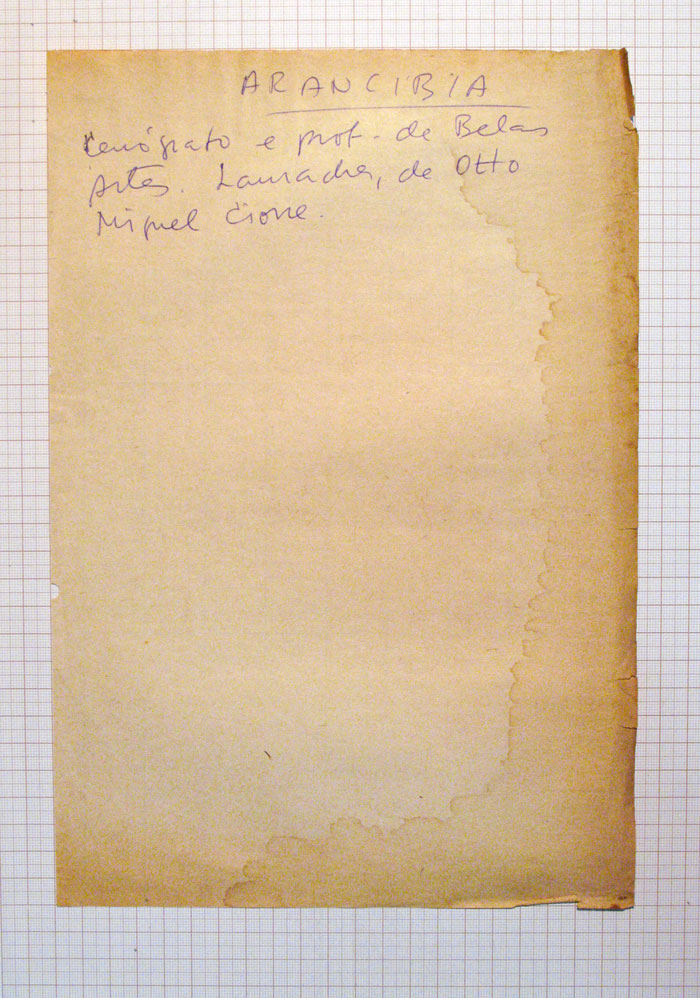 ARANCIBIA
cenógrafo e prof. de Belas
Artes. Lauracha, de Otto
Miguel Cione.